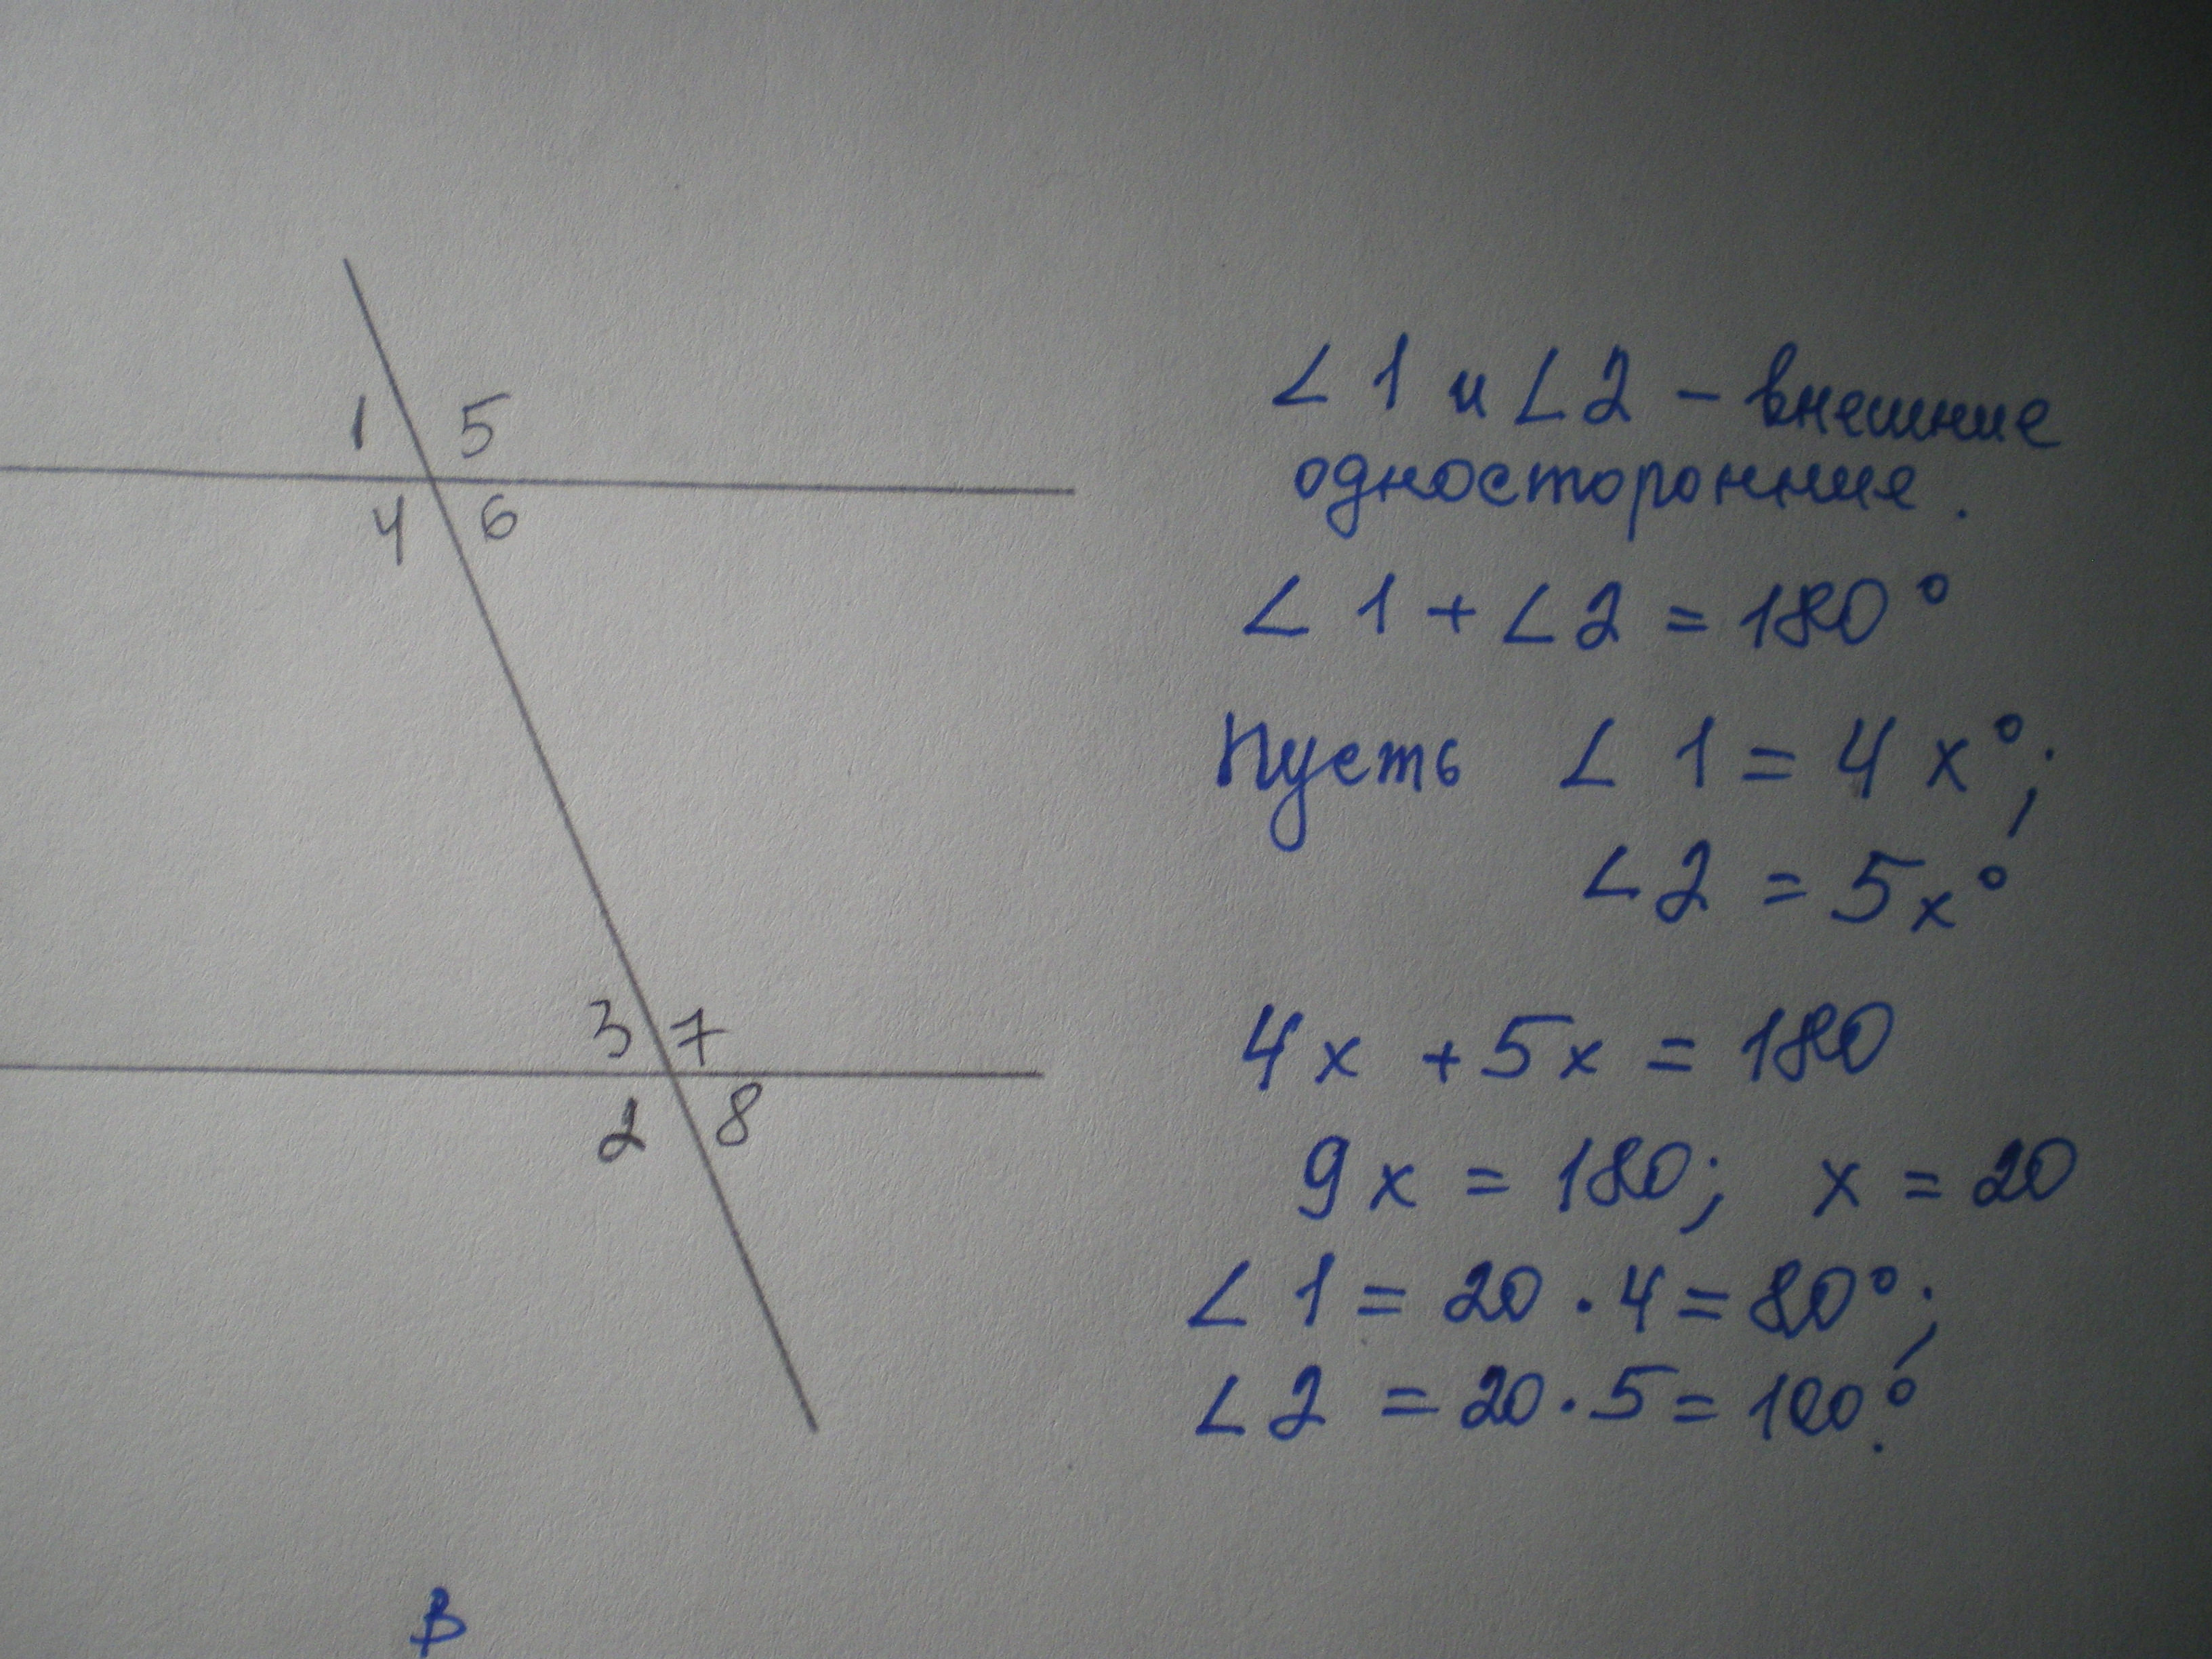 1 5
4 6
3 7
2 8
В
∠1 и ∠2 – внешние
односторонние.
∠1 + ∠2 = 180°
Пусть ∠1 = 4x°;
∠2 = 5x°
4x + 5x = 180
9x = 180; x = 20
∠1 = 20 · 4 = 80°;
∠2 = 20 · 5 = 100°.